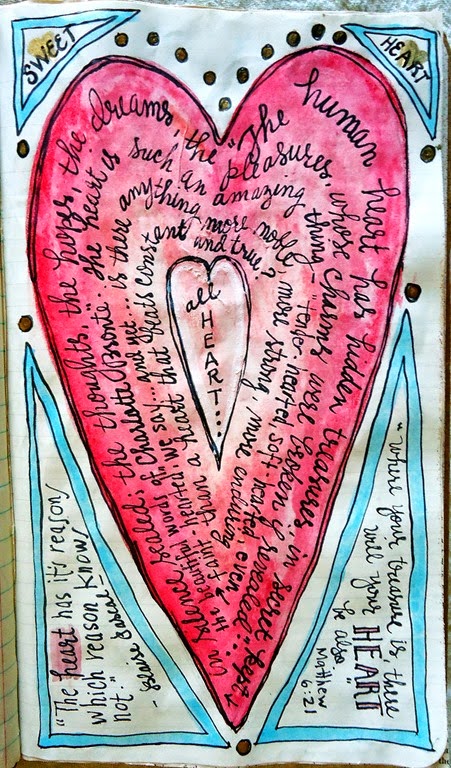 SWEET
HEART
"The human heart has hidden treasures, in secret kept,
in silence sealed; the thoughts, the hopes, the dreams, the pleasures, whose charms were broken if revealed...
in the beautiful words of Charlotte Bronte." The heart is such an amazing thing - "tender hearted, soft hearted, even
faint-hearted" we say... and yet... is there anything more noble, more strong, more enduring
than a heart that beats constant and true?
all
HEART...
"The heart has its reason,
which reason know,
not."
- Blaise Pascal -
"where your treasure is, there
will your HEART
be also"
Matthew
6:21